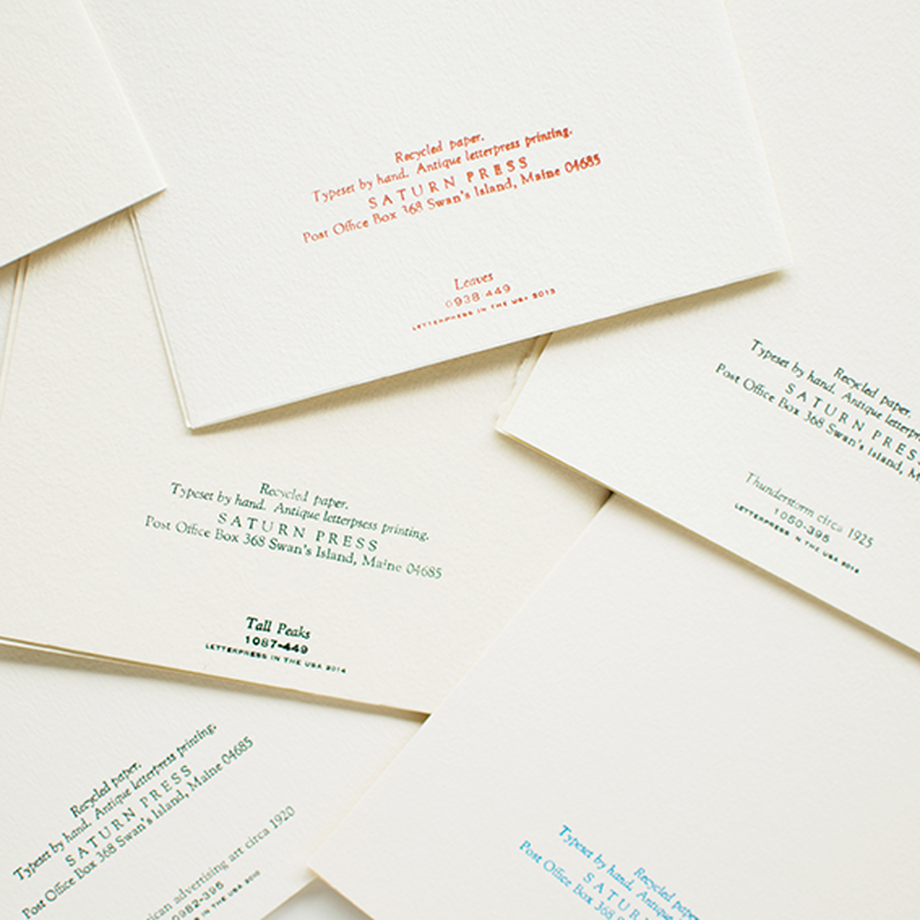 Recycled paper.
Typeset by hand. Antique letterpress printing.
SATURN PRESS
Post Office Box 368 Swan's Island, Maine 04685
Leaves
0938-449
LETTERPRESS IN THE USA 2013
Recycled paper.
Typeset by hand. Antique letterpr
SATURN PRESS
Post Office Box 368 Swan's Island, M
Thunderstorm circa 1925
1050-395
LETTERPRESS IN THE USA 2014
Recycled paper.
Typeset by hand. Antique letterpsess printing.
SATURN PRESS
Post Office Box 368 Swan's Island, Maine 04685
Tall Peaks
1087-449
LETTERPRESS IN THE USA 2014
Recycled paper.
Typeset by hand. Antique letterpress printing.
SATURN PRESS
Post Office Box 368 Swan's Island, Maine 04685
ican advertising art circa 1920
0982-395
IN THE USA 2010
Recycled pap
Typeset by hand. Antique
SATU
Post Office Box 368